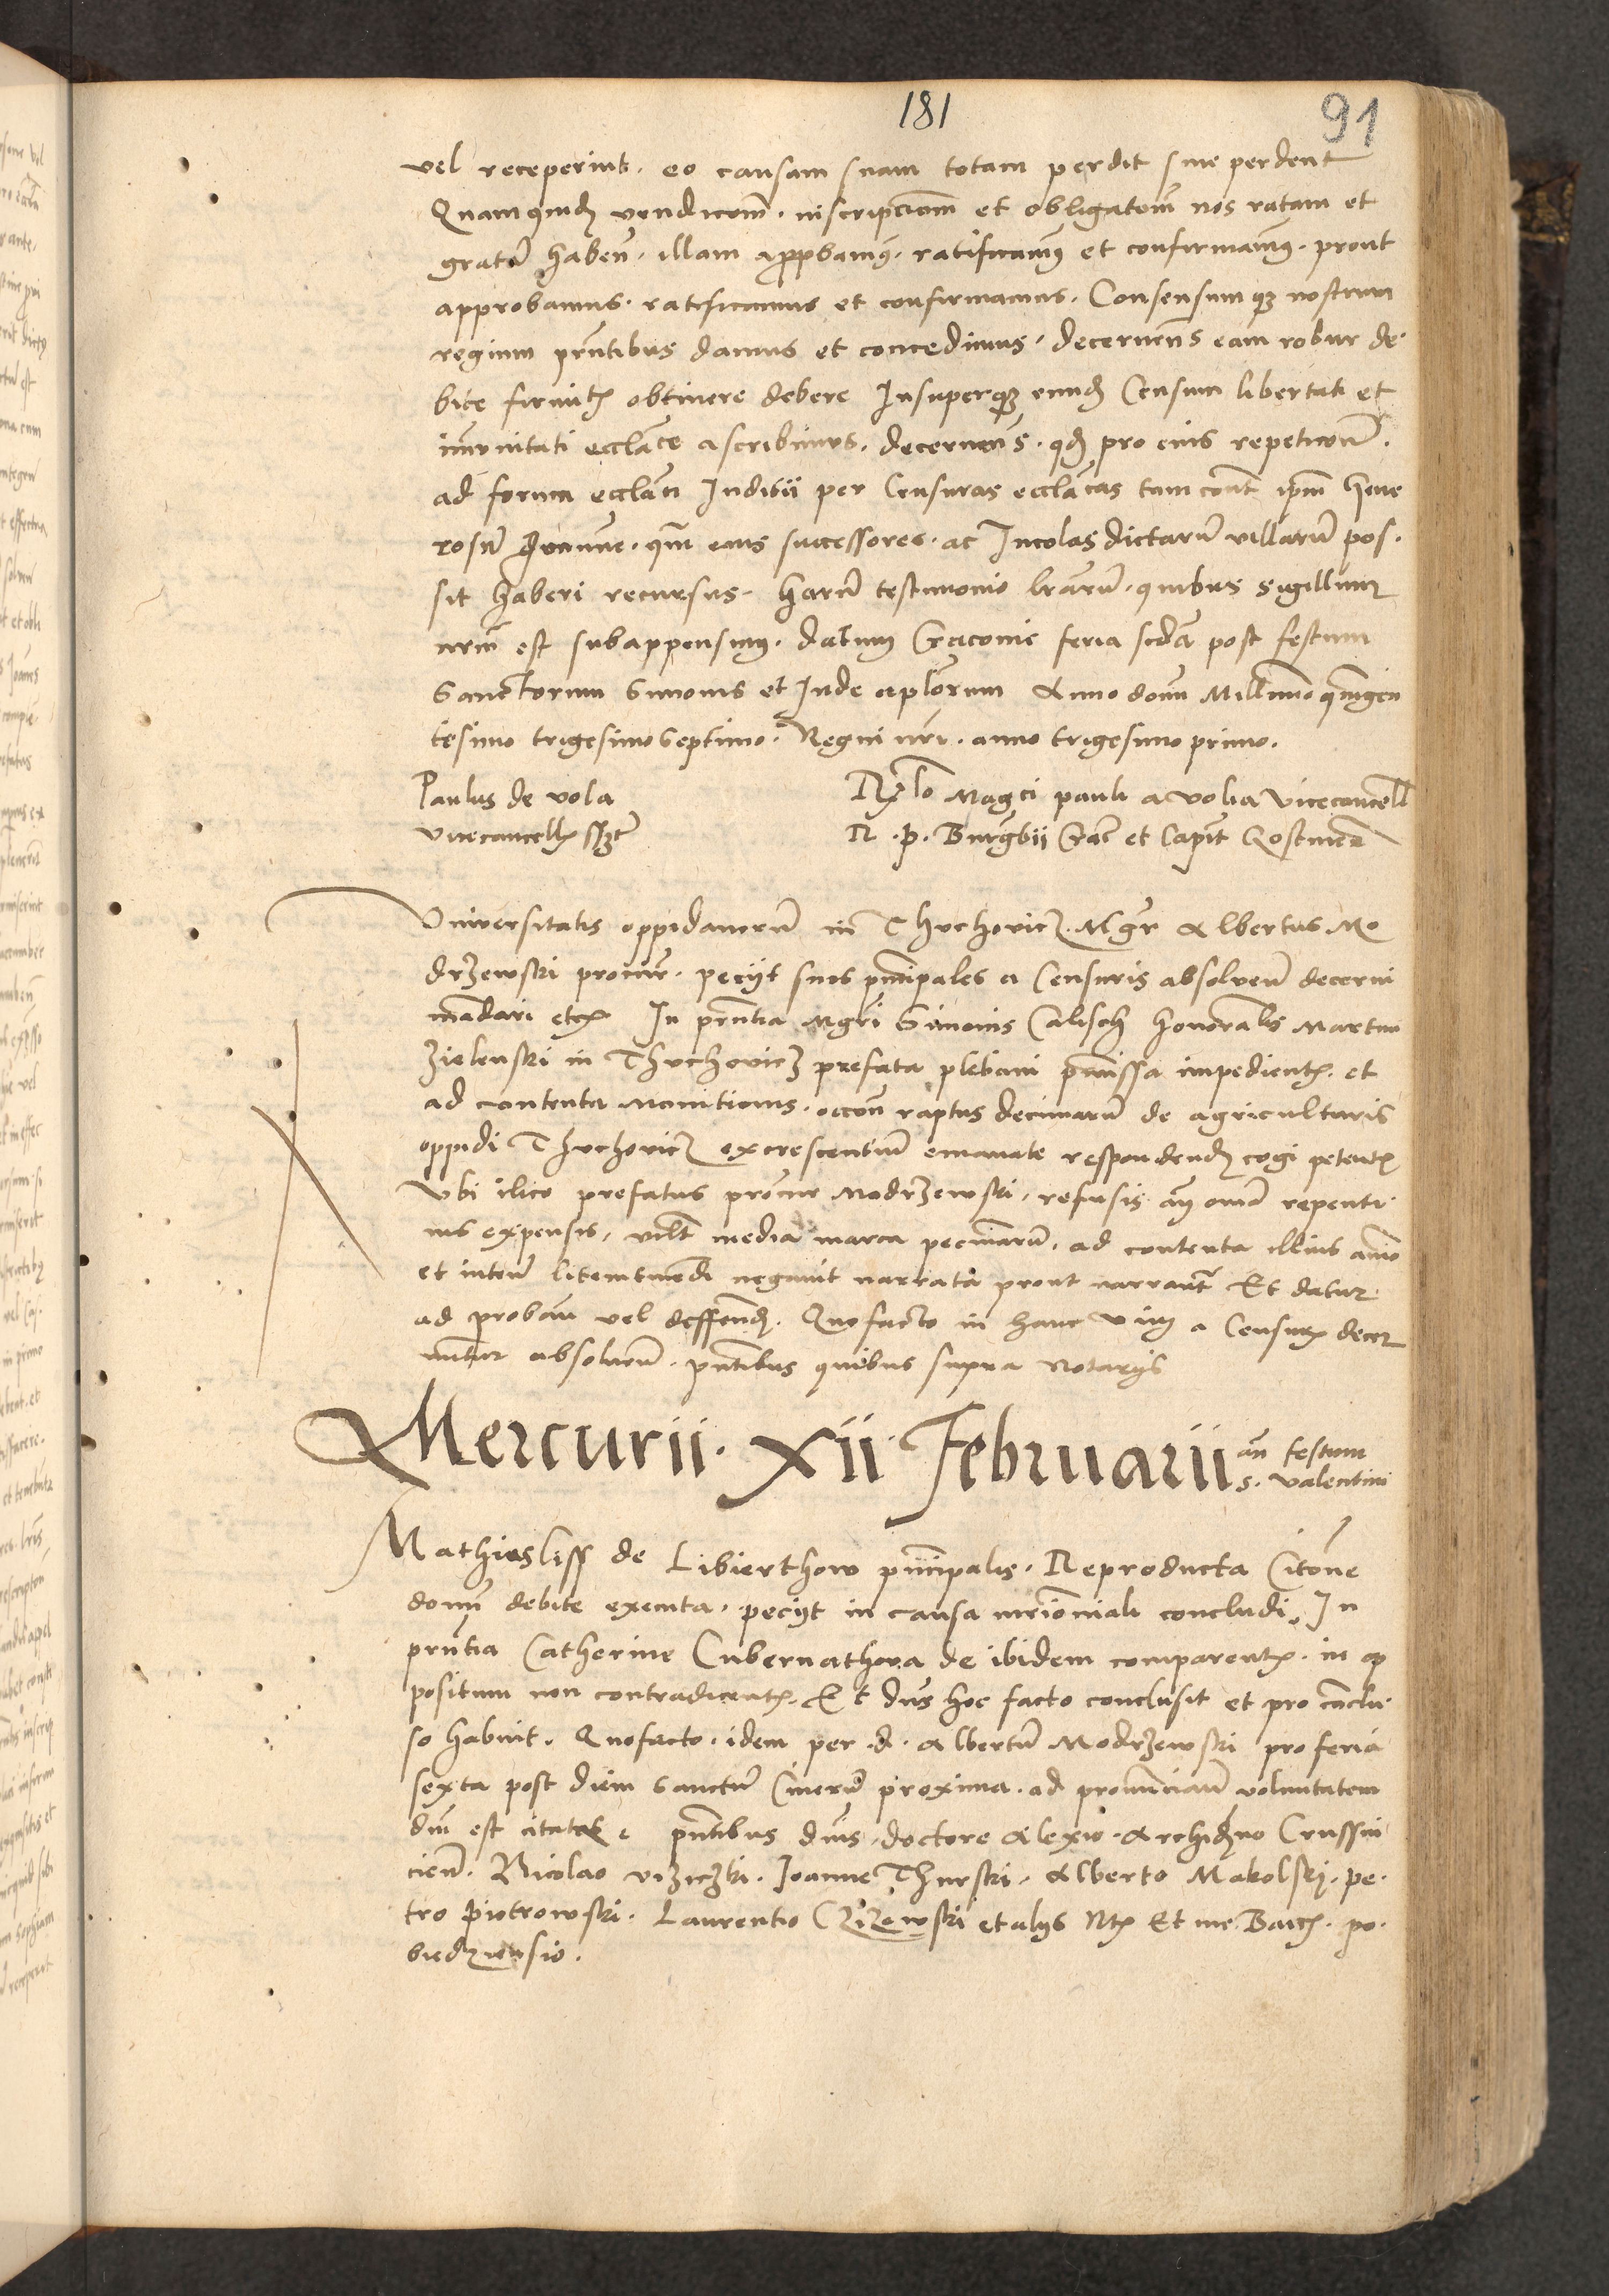 181
91
vel receperint. eo causam suam totam perdit siue perdent
Quamquidem vendicionem. inscripcionem et obligationem nos ratam et
gratam habentes. illam approbamus. ratificamus et confirmamus. prout
approbamus. ratificamus et confirmamus. Consensumque nostrum
regium presentibus damus et concedimus. decernentes eam robur de
bite firmitatis obtinere debere Insuperque eundem Censum libertati et
immunitati ecclesiastice ascribimus. decernentes. quod pro eius repeticione.
ad forum ecclesiasticum Iudicii per Censuras ecclesiasticas tam contra ipsum gene
rosum Ioannem. quam eius successores. ac Incolas dictarum villarum pos.
sit haberi recursus. harum testimonio literarum. quibus sigillum
nostrum est subappensum. datum Cracovie feria secunda post festum
Sanctorum Simonis et Jude apostolorum Anno domini Millesimo quingen
tesimo trigesimo septimo. Regni nostri. anno trigesimo primo.
Paulus de vola
vicecancellarius sst
Relatio Magci pauli a volia vicecancell
R. p. Burgrabii Crac et Capit Gostinen
Universitatis oppidanorum in Thuchovicz. Mgr Albertus Mo
drzewski procur. peciit suos principales a Censuris absolvend decerni
mandari etc In presentia Mgri Simonis Calisch honorabilis Martini
Zielenski in Thuchovicz prefata plebani premissa impedientis. et
ad contenta Monitionis. occasione raptus decimarum de agriculturis
oppidi Thuchovicz excrescentium emanate respondendum cogi petentis
Ubi ilico prefatus procur Modrzewski. refusis ante omnia repenti
nis expensis. videlicet media marca pecuniarum. ad contenta illius animo
et intentione litem contestandi negavit narrata prout narrantur Et datur
ad proband vel deffendend. Quo facto in hanc vim a Censuris decer
nuntur absolvend. presentibus quibus supra Notariis
Mercurii. xii. Februarii an festum
S. Valentini
Mathias liss de Libierthow principalis. Reproducta Citatione
domini debite executa. peciit in causa matrimoniali concludi. In
presentia Catherine Cubernathora de ibidem comparentis. in op
positum non contradicentis. Et dominus hoc facto conclusit et pro conclu
so habuit. Quo facto. idem per. d. Albertum Modrzewski pro feria
sexta post diem sanctum Cinerum proxima. ad pronunciandum voluntatem
domini est citatus presentibus dominis. doctore Alexio. Archidiacono Crussvi
ciensi. Nicolao viziczki. Ioanne Thurski. Alberto Makolski. pe.
tro piotrowski. Laurentio Czizewski et aliis Notariis Et me Barth. po.
biedziensis.